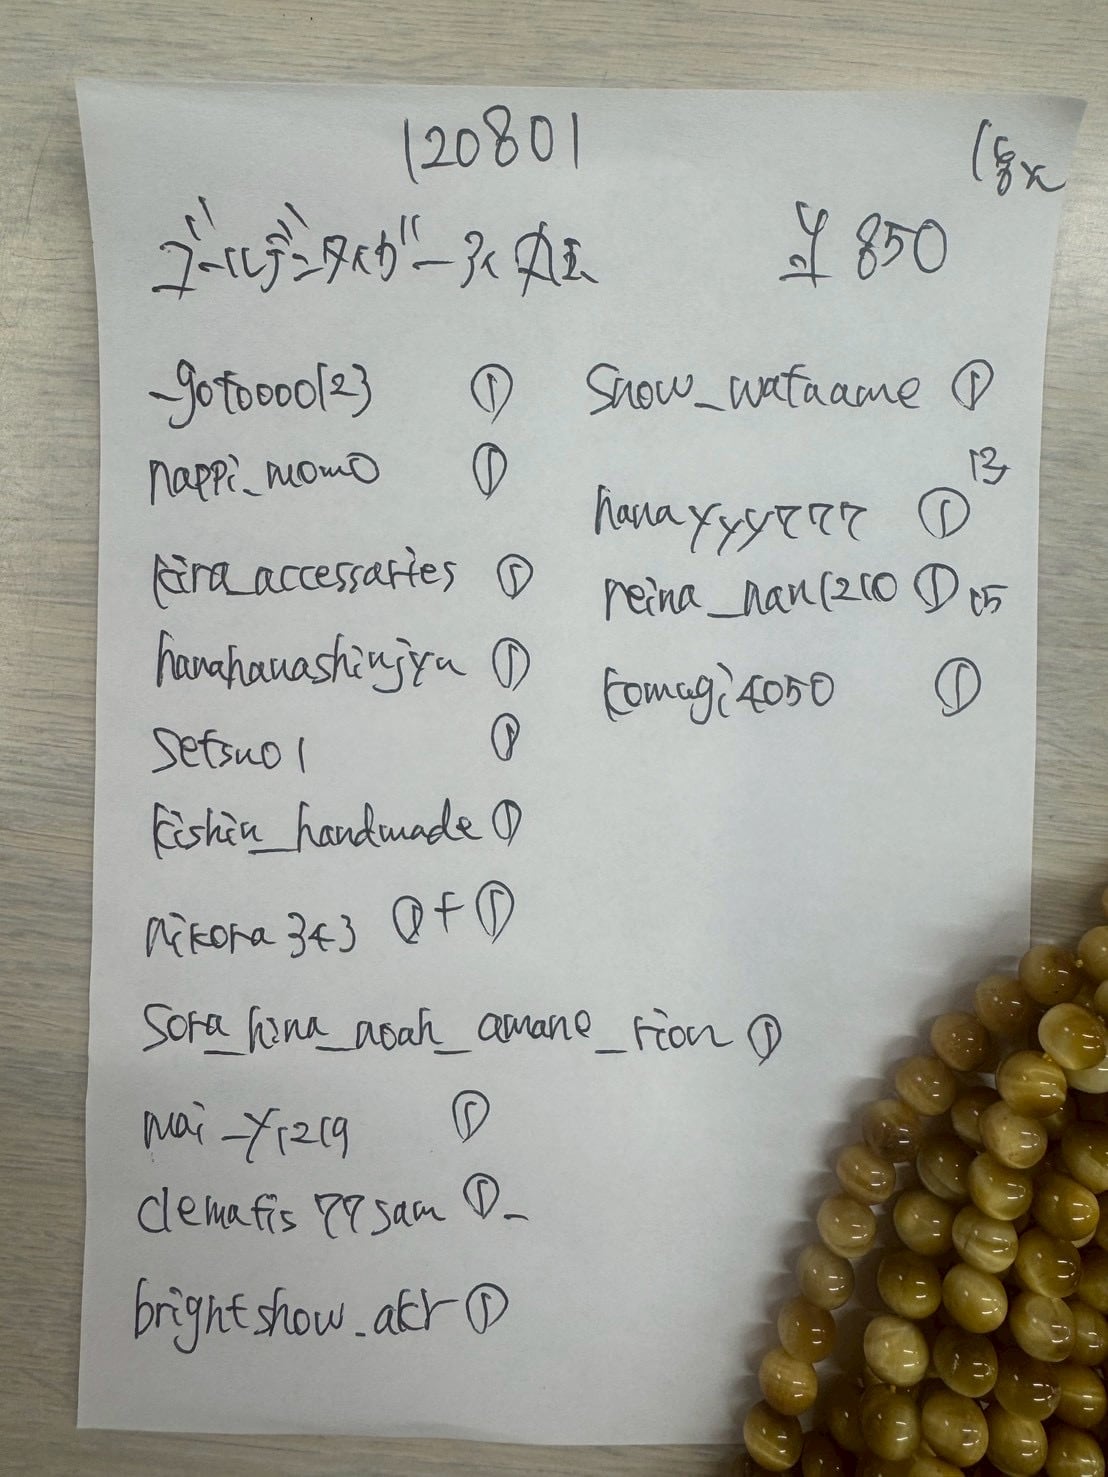 120801
ゴールデンタイガーアイ 丸玉
¥850
_gotoooo123 ①
nappi_momo ①
kira_accessaries ①
hanahanashinjyu ①
setsuo1 ①
kishin_handmade ①
nikora343 ①+①
sora_hina_noah_amane_rion ①
mai_y1219 ①
clematis77sam ①
brightshow_akr ①
snow_wataame ①
13
hanayyy777 ①
reina_nan1210 ① 15
komugi4050 ①